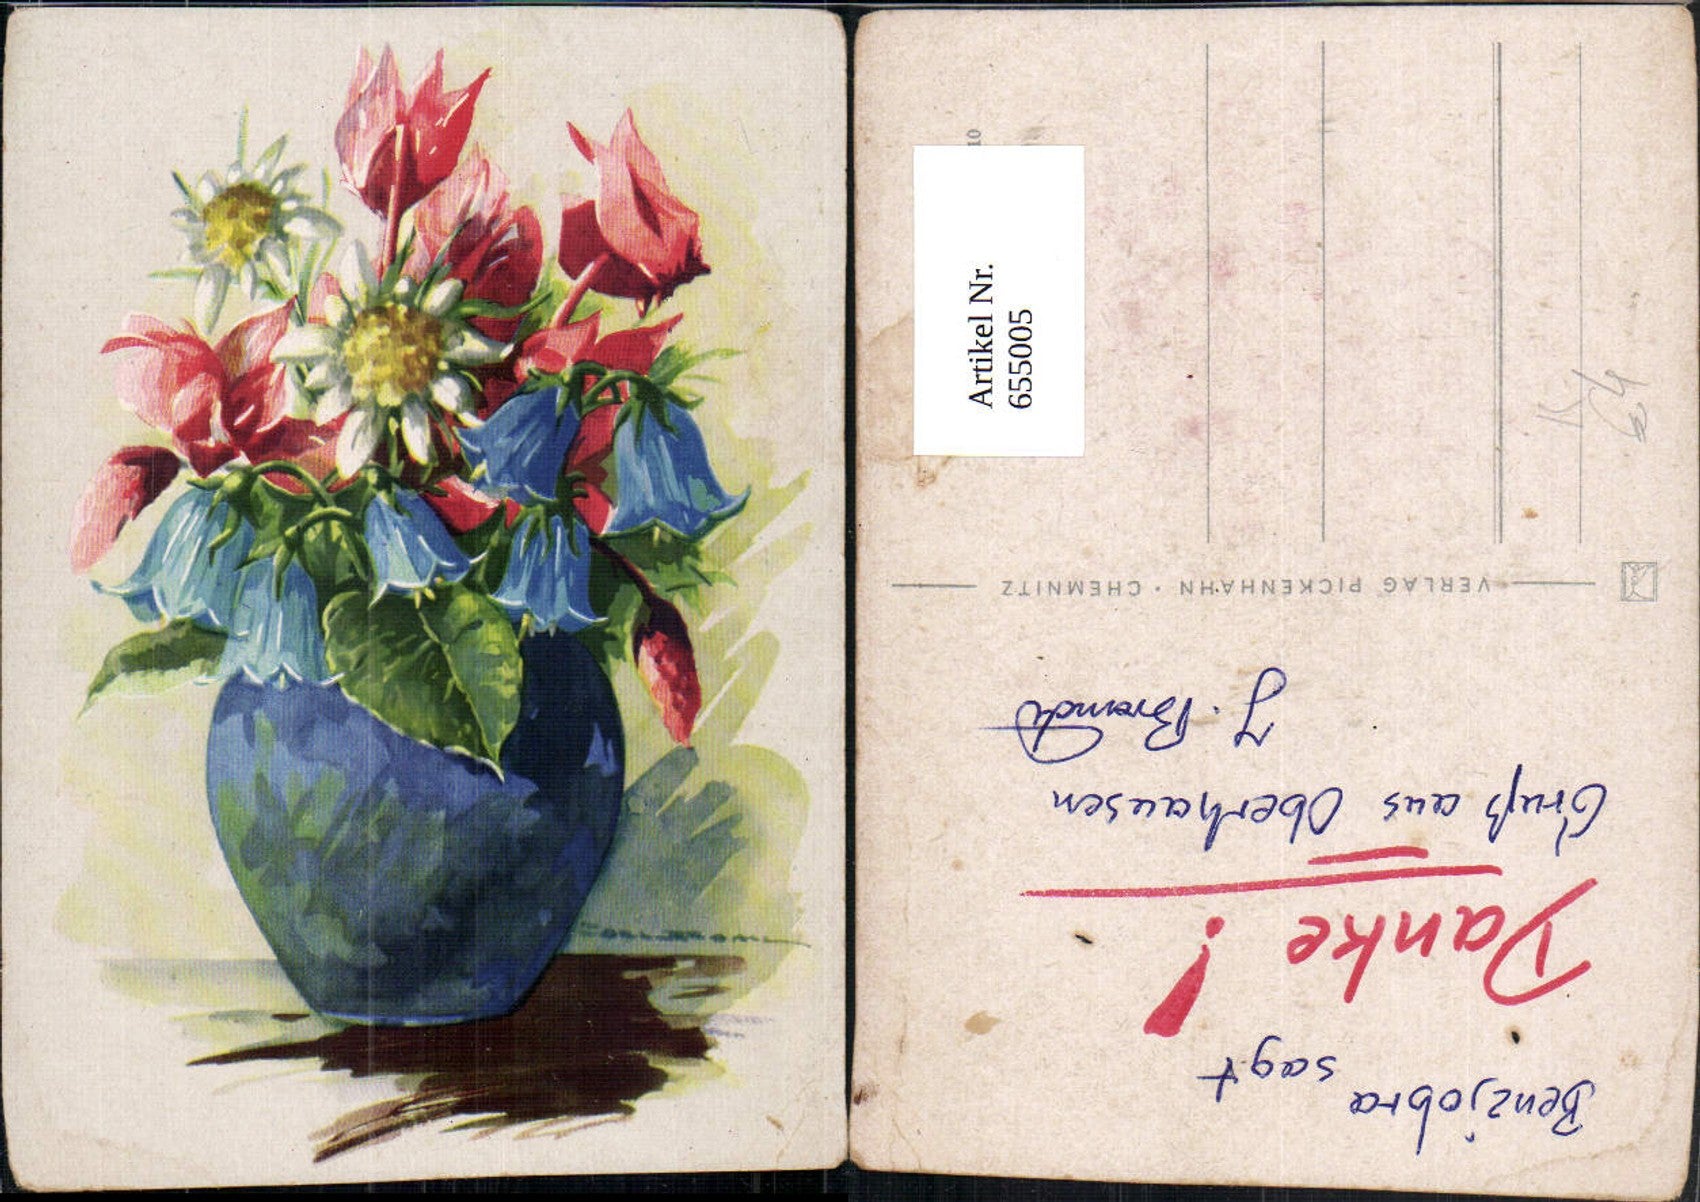 Benzjobra
sagt
Danke!
Gruß aus Oberhausen
J. Brendt
VERLAG PICKENHAHN · CHEMNITZ
Artikel Nr.
655005
10
64